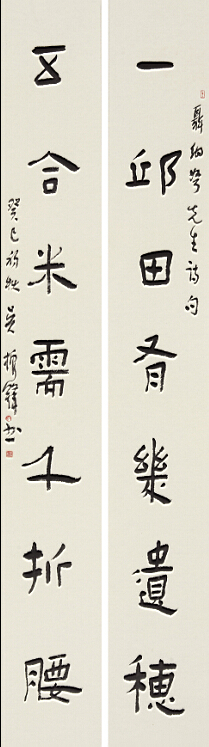 一邱田有幾遺穗
聶紺弩先生詩句
五合米需千折腰
癸巳初秋吳振鋒書